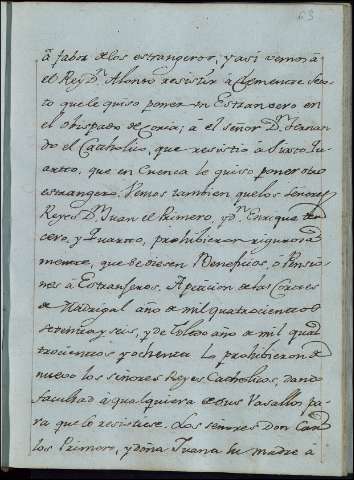 63
à fabor de los estrangeros, y asi vemos à
el Rey D.n Alonso resistir à Clemente Sex-
to que le quiso poner un Estrangero en
el obispado de Coria; á el señor D.n Fernan-
do el Catholico, que resistio à Sixto Qu-
arto, que en Cuenca le quiso poner otro
estrangero. Vemos tambien que los Señores
Reyes D.n Juan el Primero, y D.n Enrique ter-
cero, y Quarto, prohibieron rigurosa
mente, que se diesen Beneficios, o Pensio-
nes à Estrangeros. A peticion de las Cortes
de Madrigal año de mil quatrocientos
setenta y seis, y de Toledo año de mil qua-
trocientos y ochenta lo prohibieron de
nuevo los señores Reyes Catholicos, dando
facultad à qualquiera de sus Vasallos pa-
ra que lo resistiese. Los señores don Car-
los Primero, y doña Juana su madre à